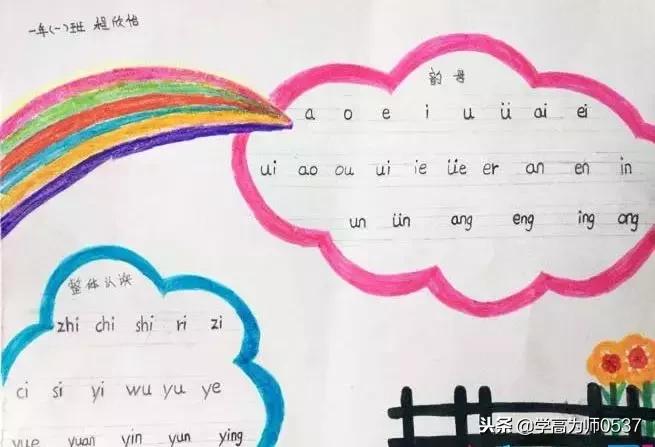 一年(一)班 程欣怡
韵母
a o e i u ü ai ei
ui ao ou ui ie üe er an en in
un ün ang eng ing ong
整体认读
zhi chi shi ri zi
ci si yi wu yu ye
yue yuan yin yun ying
头条 @学高为师0537